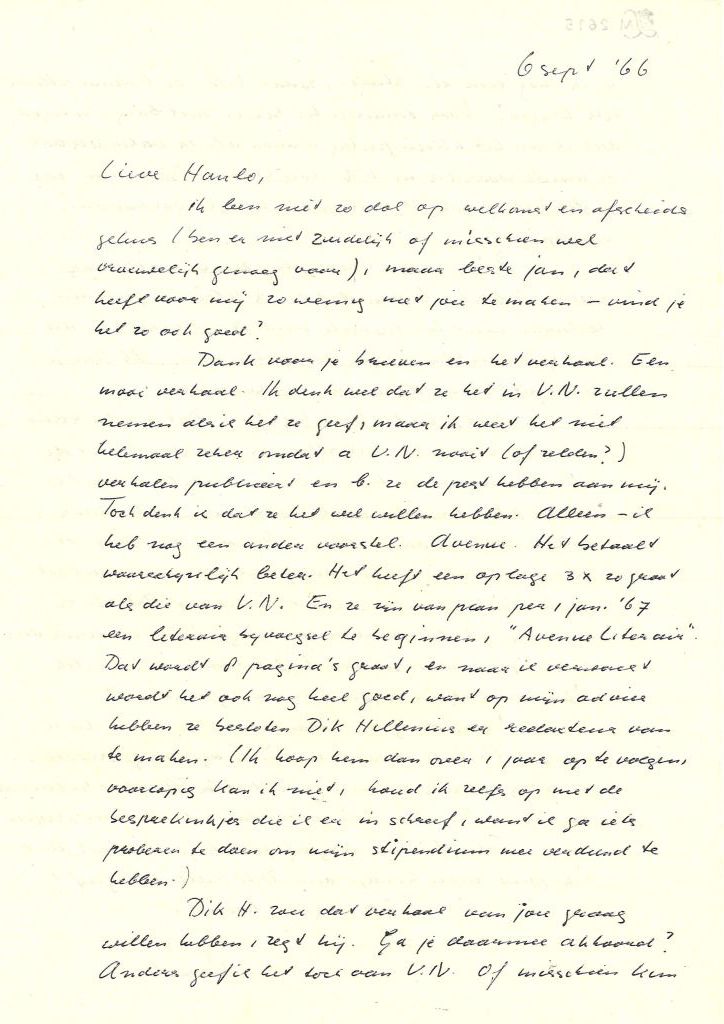 6 sept '66
Lieve Hanlo,
ik ben niet zo dol op welkomst en afscheids
gedoe (ben er niet zedelijk of misschien wel
vrouwelijk genoeg voor), maar beste jan, dat
heeft voor mij zo weinig met jou te maken – vind je
het zo ook goed?
Dank voor je brieven en het verhaal. Een
mooi verhaal. Ik denk wel dat ze het in V.N. zullen
nemen als ik het ze geef, maar ik weet het niet
helemaal zeker omdat a V.N. nooit (of zelden?)
verhalen publiceert en b. ze de pest hebben aan mij.
Toch denk ik dat ze het wel willen hebben. Alleen – ik
heb nog een ander voorstel. Avenue. Het betaalt
waarschijnlijk beter. Het heeft een oplage 3 x zo groot
als die van V.N. En ze zijn van plan per 1 jan. '67
een literair bijvoegsel te beginnen, "Avenue Literair".
Dat wordt 8 pagina's groot, en naar ik verwacht
wordt het ook nog heel goed, want op mijn advies
hebben ze besloten Dik Hillenius er redakteur van
te maken. (Ik hoop hem dan over 1 jaar op te volgen,
voorlopig kan ik niet, houd ik zelfs op met de
besprekinkjes die ik er in schreef, want ik ga iets
proberen te doen om mijn stipendium mee verdiend te
hebben.)
Dik H. zou dat verhaal van jou graag
willen hebben, zegt hij. Ga je daarmee akkoord?
Anders geef ik het toch aan V.N. Of misschien kun